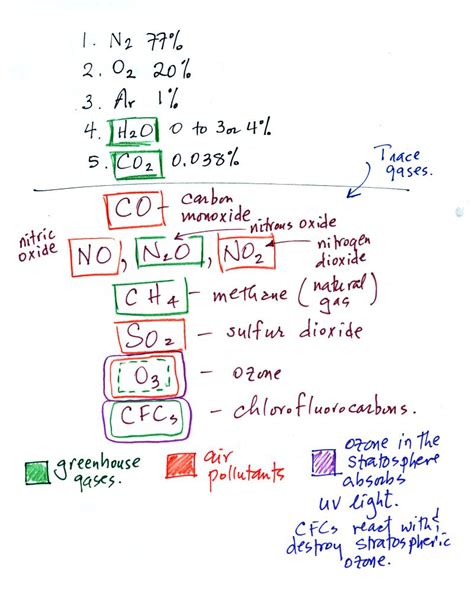 1. N₂ 77%
2. O₂ 20%
3. Ar 1%
4. H₂O 0 to 3 or 4%
5. CO₂ 0.038%
Trace gases.
CO – carbon monoxide
nitric oxide
nitrous oxide
NO, N₂O, NO₂
nitrogen dioxide
CH₄ – methane (natural gas)
SO₂ – sulfur dioxide
O₃ – ozone
CFCs – chlorofluorocarbons.
greenhouse gases.
air pollutants
ozone in the
Stratosphere
absorbs
UV light.
CFCs react with &
destroy stratospheric
ozone.